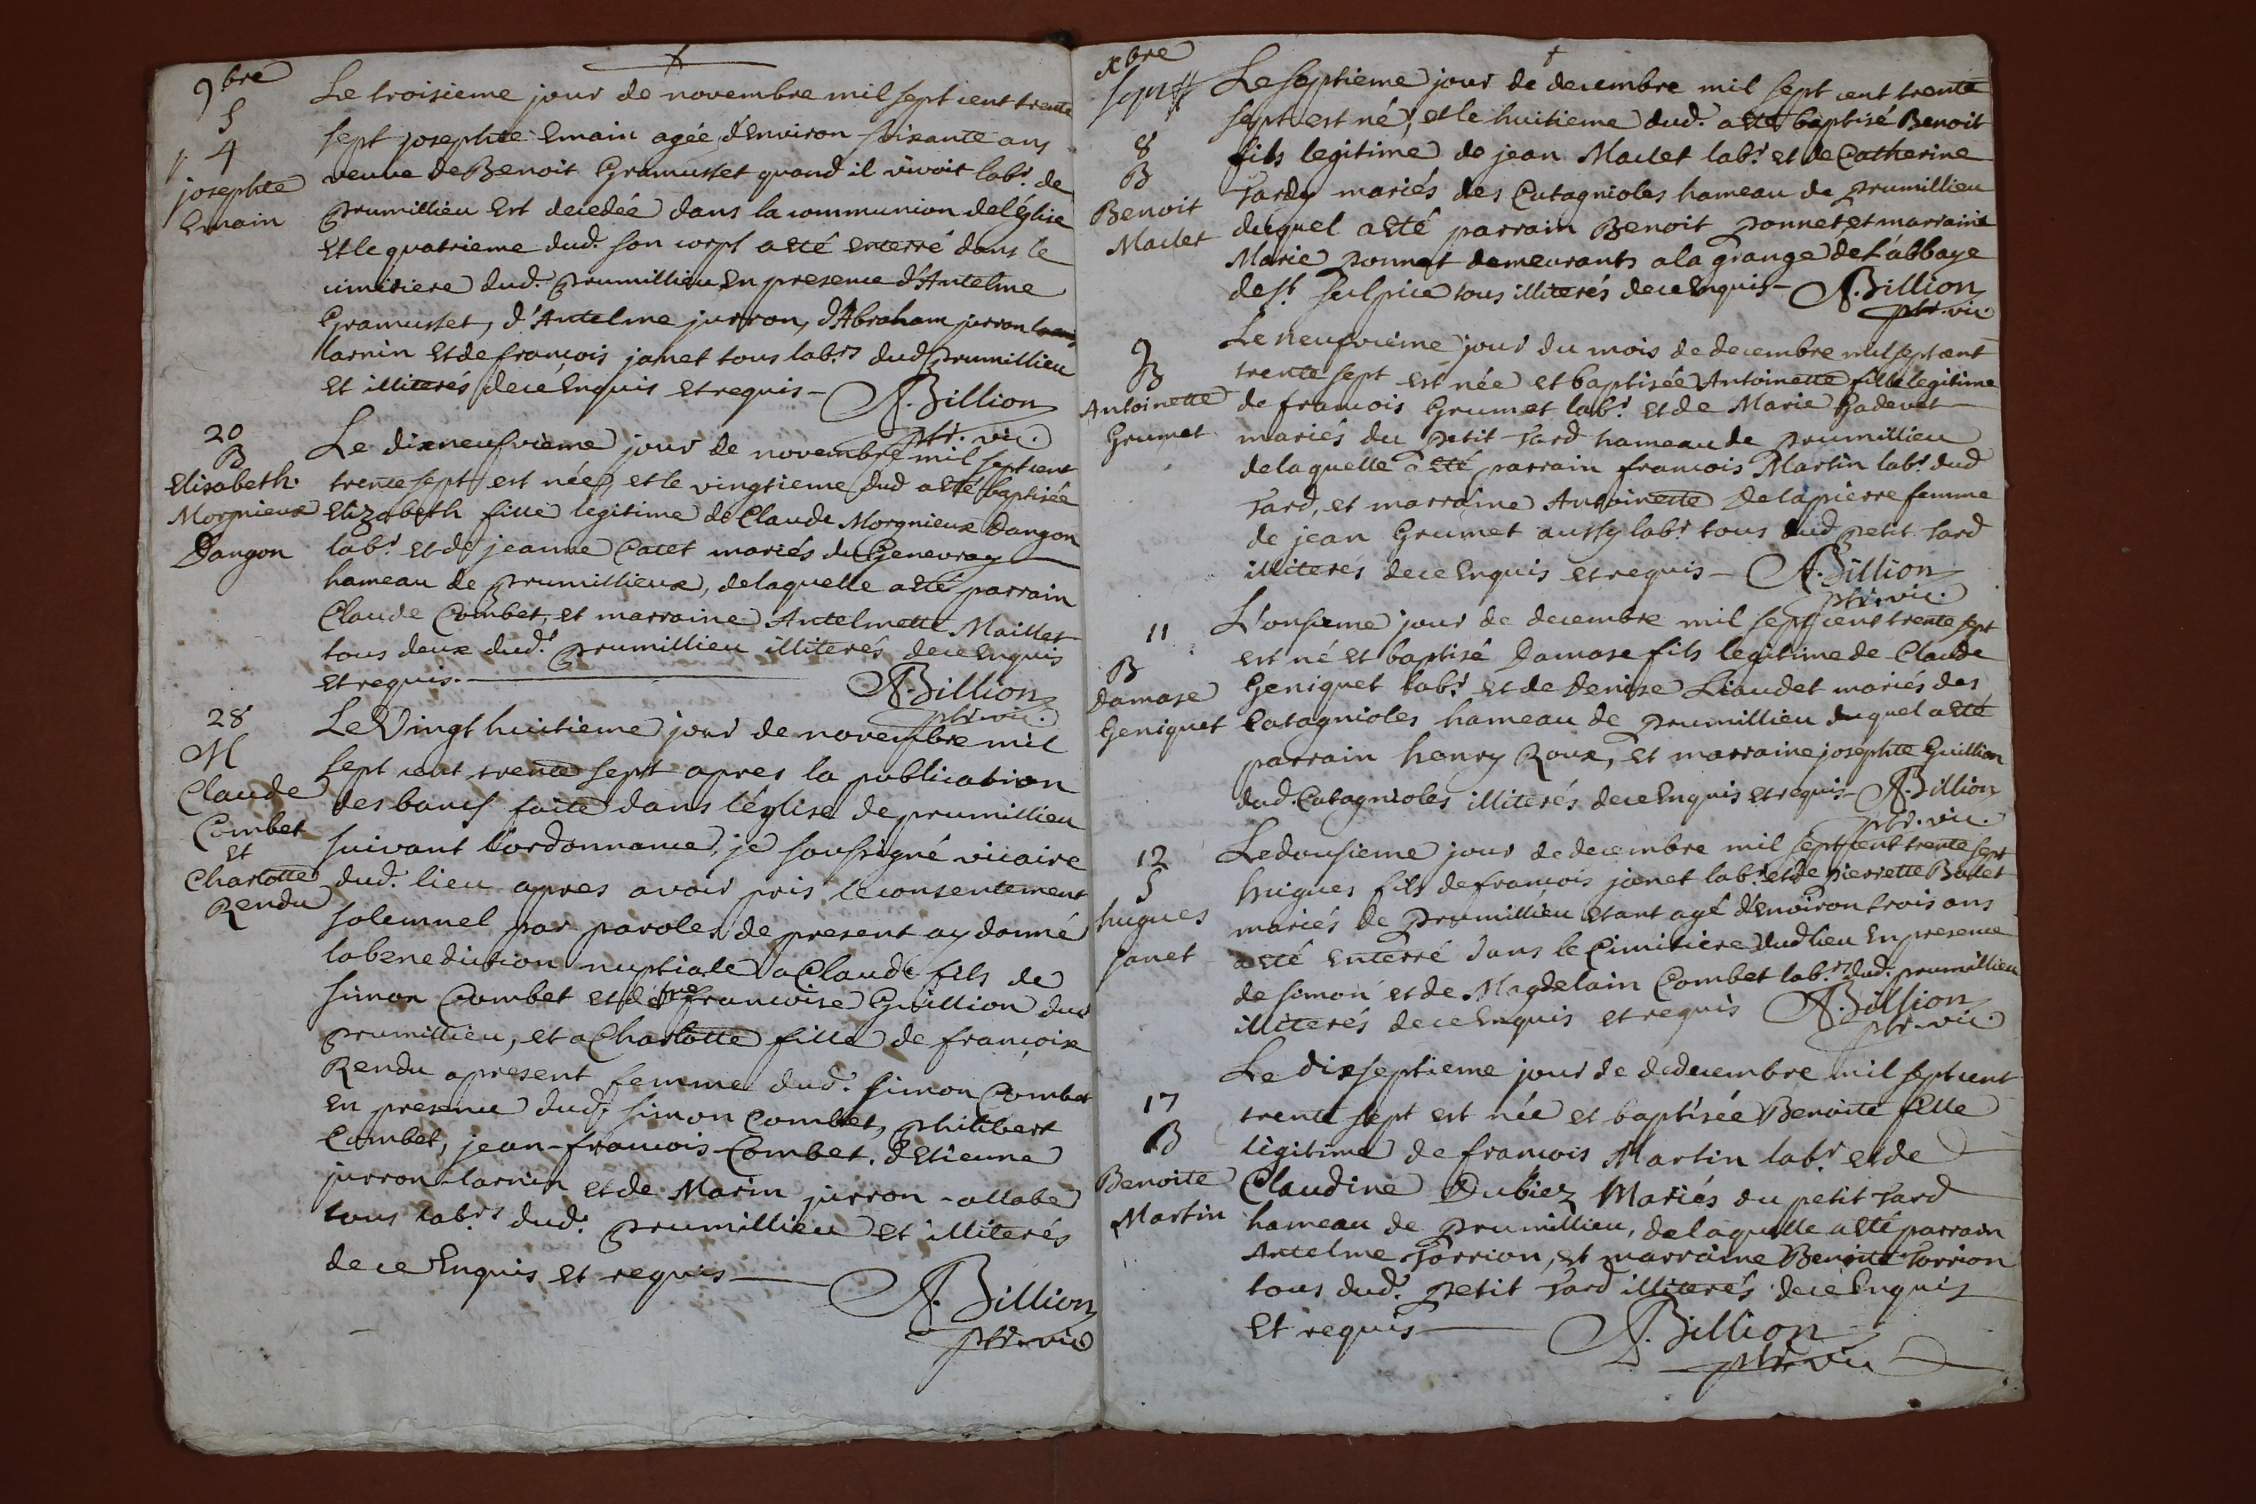 9bre
S
4
josephte
Emain
Le troisieme jour de novembre mil sept cent trente
sept josephte Emain agée d'Environ soixante ans
veuve de Benoit Gramusset quand il vivoit labr. de
prumillieu Est decedée dans la communion de l'église
Et le quatrieme dud. son corps a eté enterré dans le
cimitiere dud. prumillieu En presence d'Antelme
Gramusset, d'Antelme jurron, d'Abraham jurron
larnin Et de françois janet tous labrs dud prumillieu
Et illiterés de ce Enquis et requis - A. Billion
ptr. vic.
20
B
Elisabeth
Morgnieux
Dangon
Le dixneufvieme jour de novembre mil sept cent
trente sept est née, et le vingtieme dud a eté baptisée
Elizabeth fille legitime de Claude Morgnieux Dangon
labr. et de jeanne Catet mariés du Genevray
hameau de prumillieux, de laquelle a eté parrain
Claude Combet, et marraine Antelmette Maillet
tous deux dud. prumillieu illiterés de ce Enquis
Et requis. A. Billion
ptr. vic.
28
M
Claude
Combet
et
Charlotte
Rendu
Le Vingt huitieme jour de novembre mil
sept cent trente sept apres la publication
des bancs faite dans l'église de prumillieu
suivant l'ordonnance, je soussigné vicaire
dud. lieu apres avoir pris le consentement
solemnel par paroles de present ay donné
la benediction nuptiale a Claude fils de
simon Combet et de francoise Guillion dud
prumillieu, et a Charlotte fille de françoise
Rendu apresent femme dud. simon Combet
En presence dud. simon Combet, philibert
Combet, jean-francois Combet, d'Etienne
jurron larnin et de Marin jurron - allabe
tous labrs dud. prumillieu et illiterés
de ce Enquis et requis A. Billion
ptr. vic
xbre
sept
8
B
Benoit
Maclet
Le septieme jour de decembre mil sept cent trente
sept est né, et le huitieme dud. a eté baptisé Benoit
fils legitime de jean Maclet labr. et de Catherine
Tardy mariés des Catagnioles hameau de prumillieu
duquel a eté parrain Benoit ponnet et marraine
Marie ponnet demeurants a la grange de L'abbaye
de St. sulpice tous illiterés de ce Enquis - A. Billion
ptr. vic.
9
B
Antoinette
Grumet
Le neufvieme jour du mois de decembre mil sept cent
trente sept est née et baptisée Antoinette fille legitime
de francois Grumet labr. et de Marie Gadevet
mariés du petit Tard hameau de prumillieu
de laquelle a eté parrain francois Martin labr. dud
Tard, et marraine Antoinette Delapierre femme
de jean Grumet aussy labr. tous dud petit Tard
illiterés de ce Enquis et requis - A. Billion
ptr. vic.
11
B
Damase
Geniquet
L'onsieme jour de decembre mil sept cent trente sept
est né et baptisé Damase fils legitime de Claude
Geniquet labr. et de Denise Liaudet mariés des
Catagnioles hameau de prumillieu duquel a eté
parrain henry Roux, et marraine josephte Guillion
dud. Catagnioles illiterés de ce Enquis et requis - A. Billion
ptr. vic.
12
S
hugues
janet
Le dousieme jour de decembre mil sept cent trente sept
hugues fils de francois janet labr. et de pierrette Ballet
mariés de prumillieu etant agé d'Environ trois ans
a eté enterré dans le Cimitiere dud lieu En presence
de simon et de Magdelain Combet labrs dud. prumillieu
illiterés de ce Enquis et requis A. Billion
ptr. vic.
17
B
Benoite
Martin
Le dixseptieme jour de decembre mil sept cent
trente sept est née et baptisée Benoite fille
legitime de francois Martin labr. et de
Claudine Dubiez Mariés du petit Tard
hameau de prumillieu, de laquelle a eté parrain
Antelme Torrion, et marraine Benoite Torrion
tous dud. petit Tard illiterés de ce Enquis
Et requis A. Billion
ptr. vic